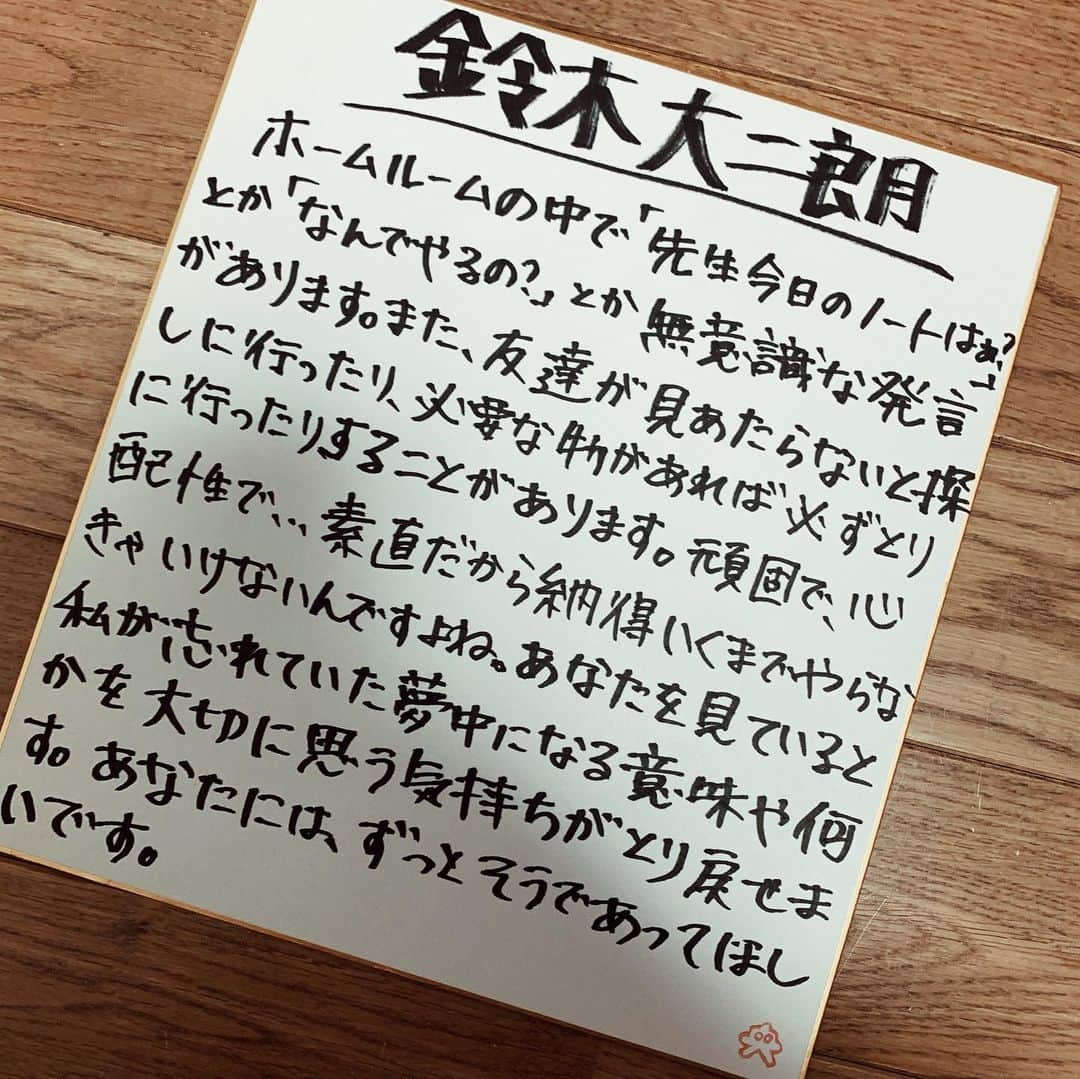 鈴木大二朗
ホームルームの中で「先生今日のノートはぁ?」
とか「なんでやるの?」とか無意識な発言
があります。また、友達が見あたらないと探
しに行ったり、必要な物があれば必ずとり
に行ったりすることがあります。頑固で、心
配性で、、、素直だから納得いくまでやらな
きゃいけないんですよね。あなたを見ていると
私が忘れていた夢中になる意味や何
かを大切に思う気持ちがとり戻せま
す。あなたには、ずっとそうであってほし
いです。